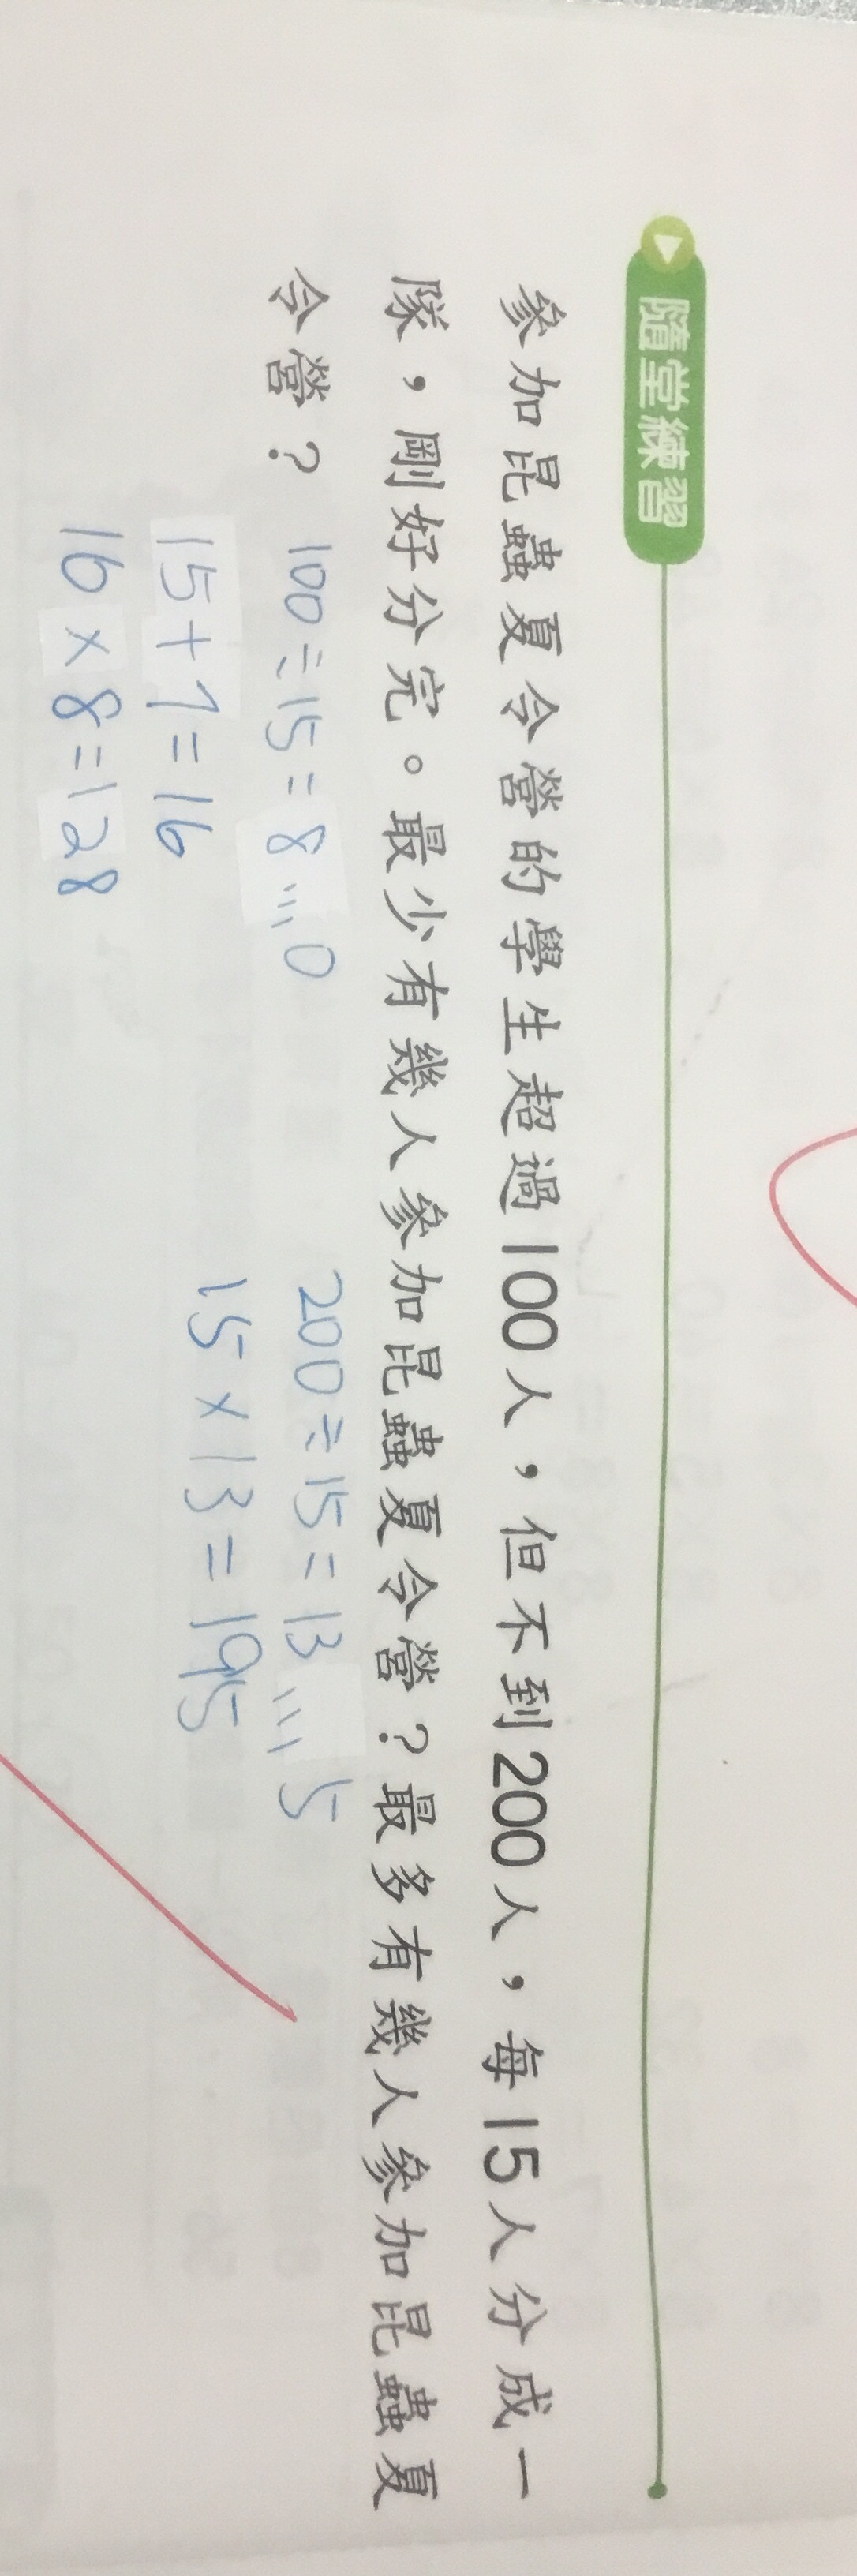 隨堂練習
參加昆蟲夏令營的學生超過100人，但不到200人，每15人分成一
隊，剛好分完。最少有幾人參加昆蟲夏令營？最多有幾人參加昆蟲夏
令營？
100÷15=8…0
15+1=16
16×8=128
200÷15=13…5
15×13=195